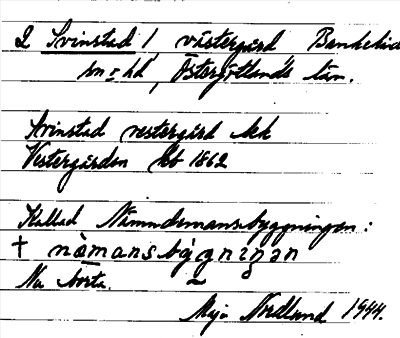 2 Svinstad 1, västergård Bankekind
sn o hd, Östergötlands län.
Svinstad vestergård Jek
Vestergården kb 1862
Kallad Nämndemansbyggningen:
† nämansbygningən
Nu borta.
Maja Nordlund 1944.